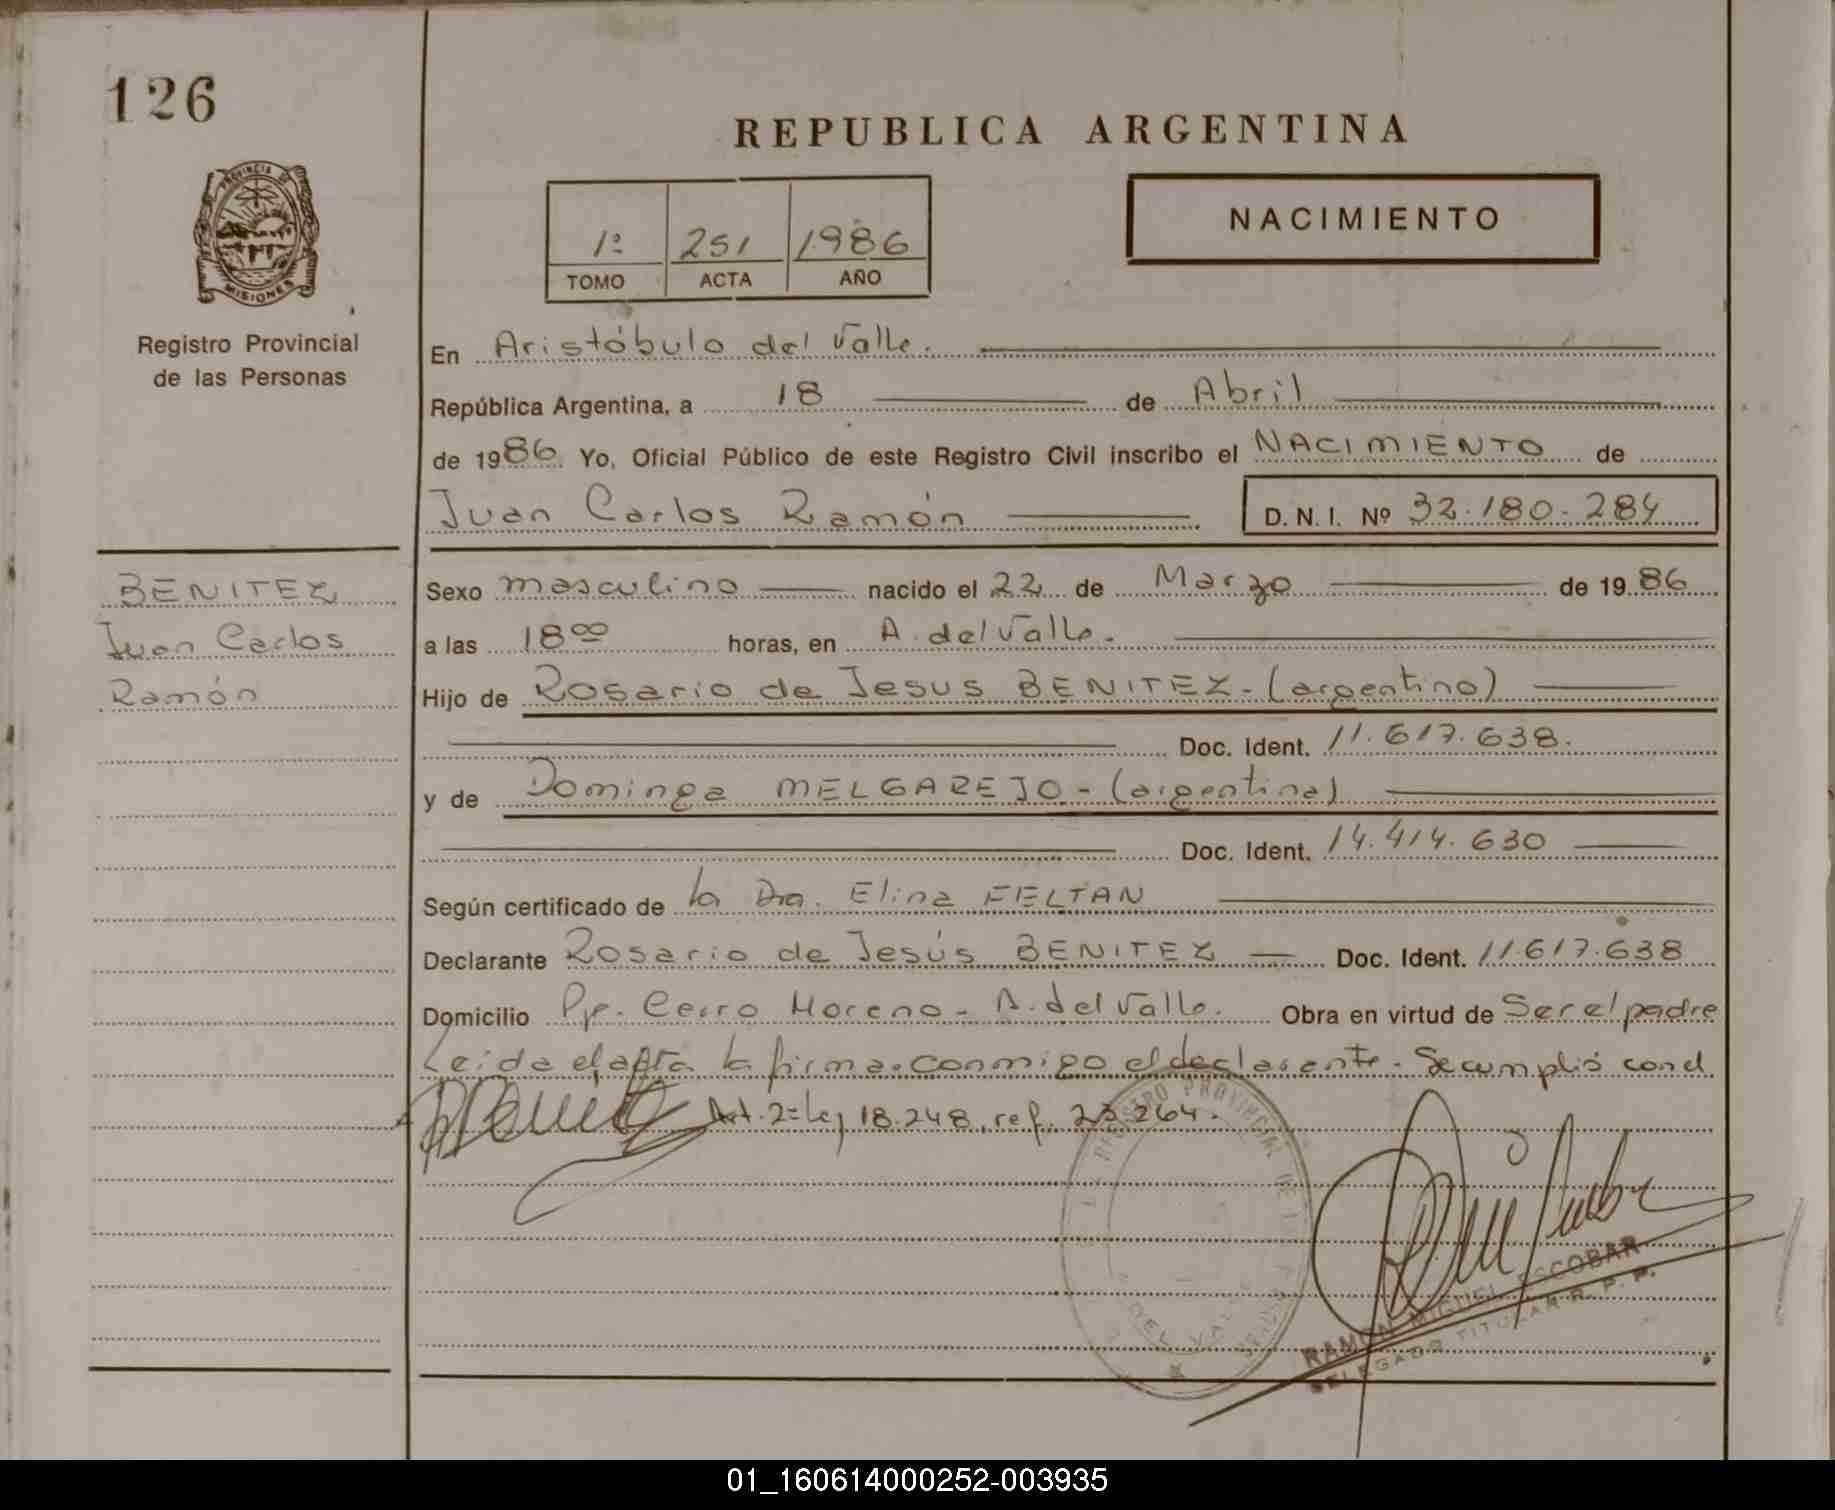 126
REPUBLICA ARGENTINA
PROVINCIA DE
MISIONES
Registro Provincial
de las Personas
1º 251 1986
TOMO ACTA AÑO
NACIMIENTO
En Aristóbulo del Valle.
República Argentina, a 18 de Abril
de 1986 Yo, Oficial Público de este Registro Civil inscribo el NACIMIENTO de
Juan Carlos Ramón D. N. I. Nº 32.180.284
BENITEZ
Juan Carlos
Ramón
Sexo masculino nacido el 22 de Marzo de 1986
a las 18⁰⁰ horas, en A. del Valle.
Hijo de Rosario de Jesus BENITEZ - (argentino)
Doc. Ident. 11.617.638.
y de Dominga MELGAREJO - (argentina)
Doc. Ident. 14.414.630
Según certificado de la Dra. Elina FELTAN
Declarante Rosario de Jesús BENITEZ Doc. Ident. 11.617.638
Domicilio Pje. Cerro Moreno - A. del Valle. Obra en virtud de Ser el padre
Leida el acta la firma conmigo el declarante - Se cumplió con el
Art. 2º Ley 18.248, ref. 23.264.
REGISTRO PROVINCIAL DE
DEL VALLE
RAMON MIGUEL ESCOBAR
DELEGADO TITULAR R. P. P.
01_160614000252-003935